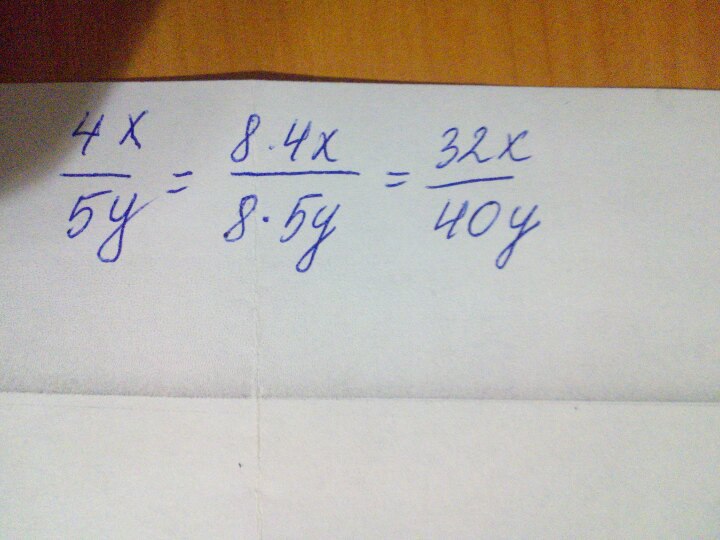 4x/5y = 8·4x/8·5y = 32x/40y